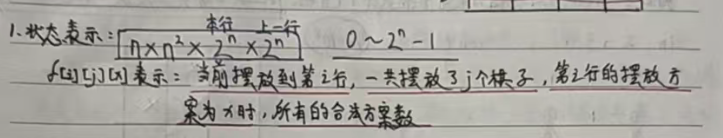 本行 上一行
1.状态表示: n×n²×2ⁿ×2ⁿ 0~2ⁿ-1
f[i][j][x]表示:当前摆放到第i行,一共摆放了j个棋子,第i行的摆放方
案为x时,所有的合法方案数